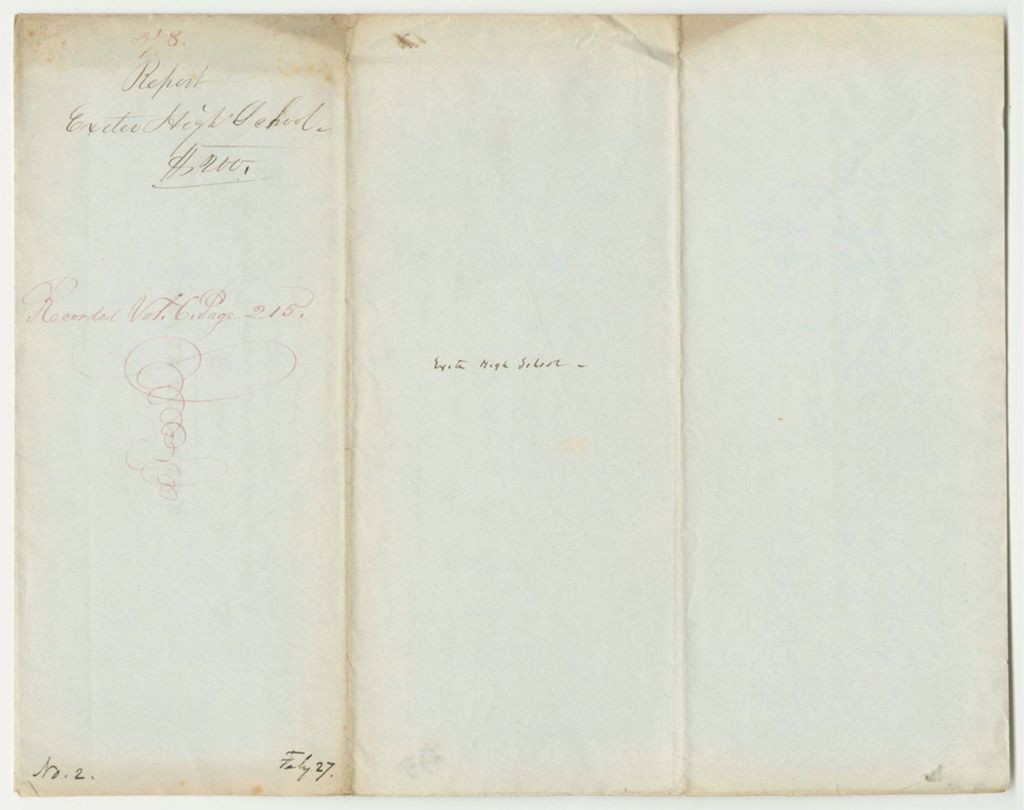 378.
Report
Exeter High School.
$200.
Recorded Vol. 6. Page 215.
Exeter High School -
No. 2.
Feby 27.